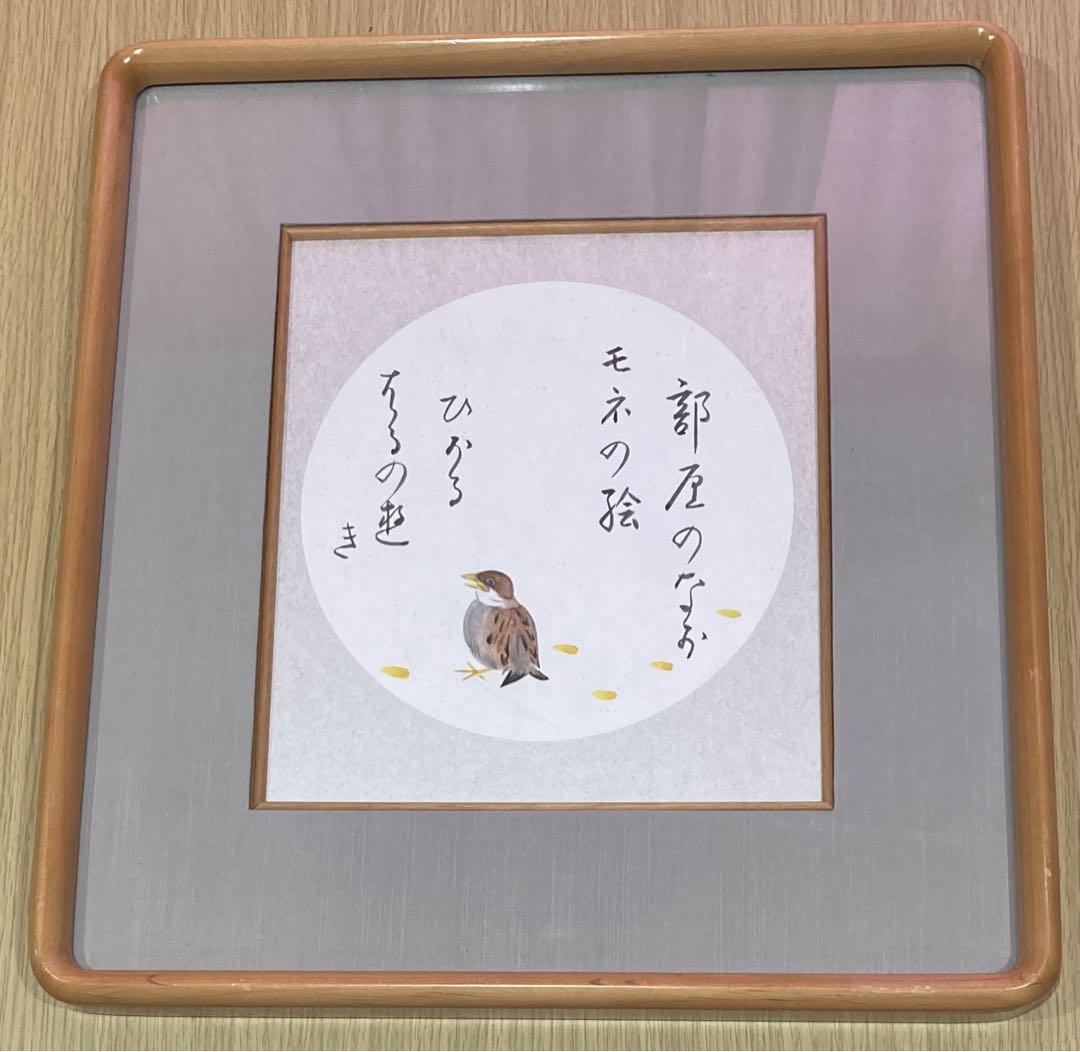 部屋のなか
モネの絵
ひかる
はるの遊
き